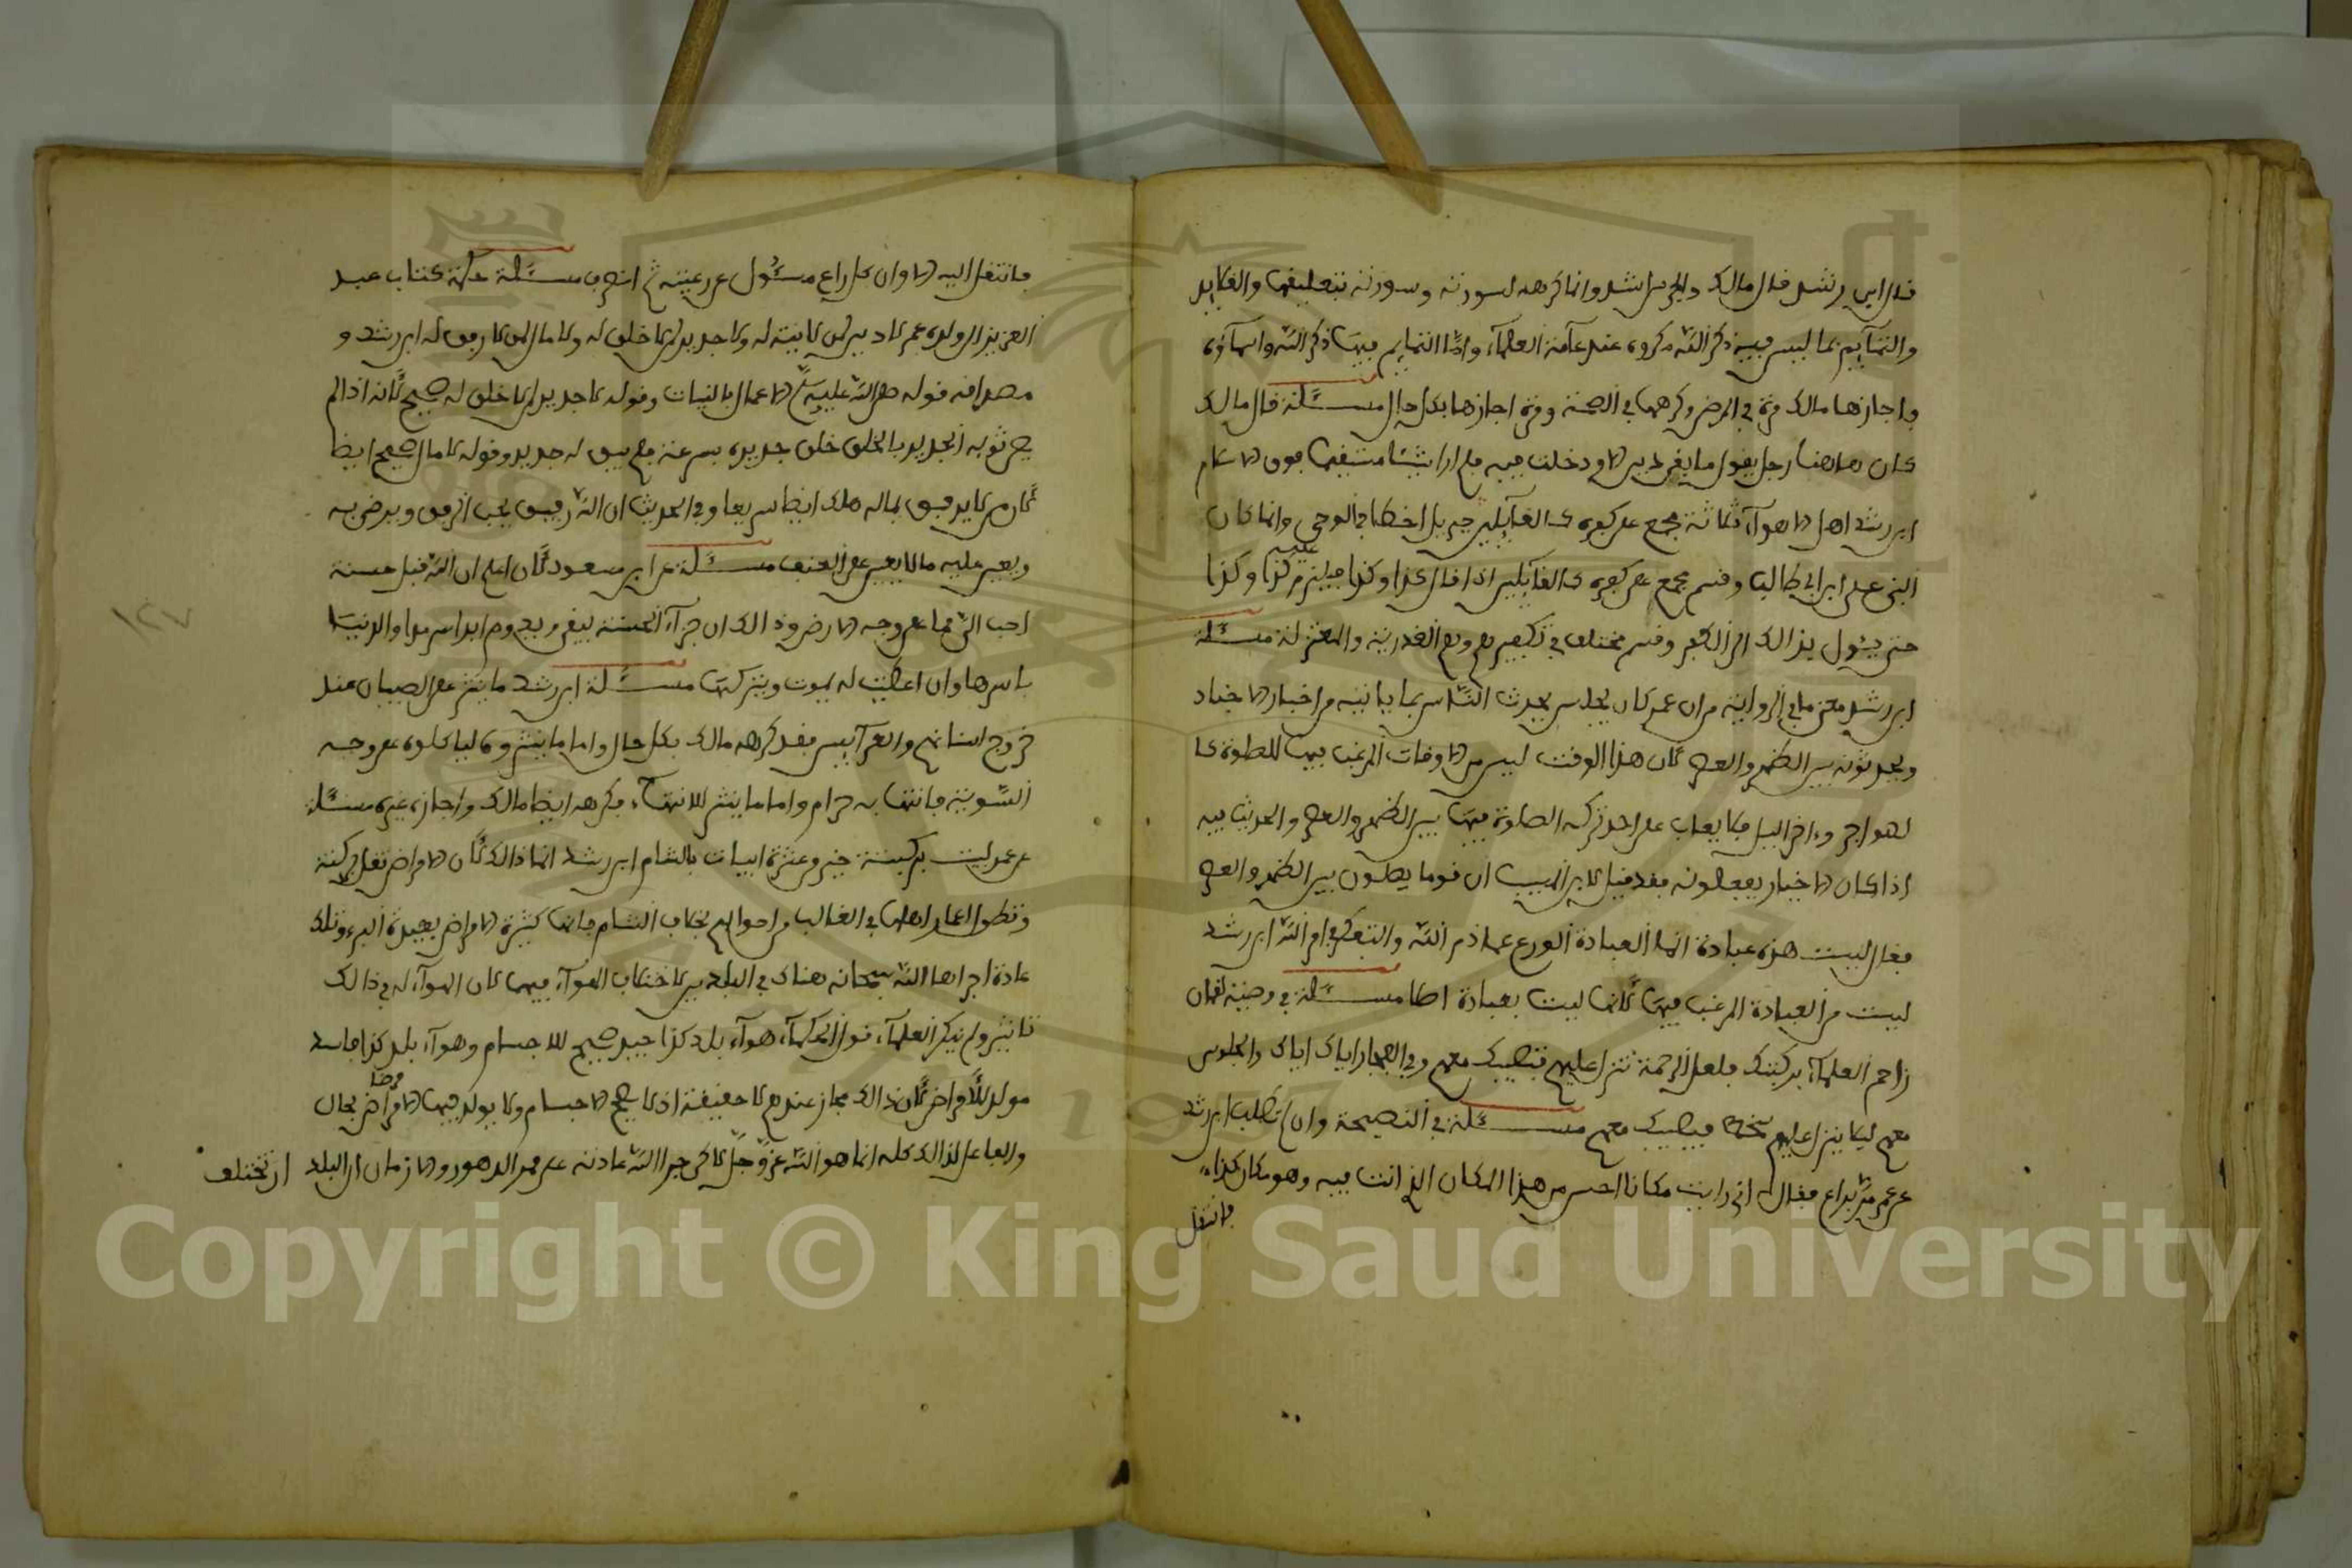 قال ابن رشد قال مالك والجرس اشد وانما كرهه لسورته وسورته بتعليقها والقلايد
والتمآيم بما ليس فيه ذكر الله مكروه عند عآمة العلمآء وامّا التمايم فيها ذكر الله واسمآؤه
فاجازها مالك مرة في المرض وكرهها في الصحة ومرة اجازها بكل حال مسئلة قال مالك
كان هاهنا رجل يقول ما بقي دين الا ودخلت فيه فلم ار شيئا مستقيما فهو الاسلام
ابن رشد اهل الاهوآء ثلاثة مجمع على كفره كالقآئلين جبريل اخطا في الوحي وانما كان
النبي علي ابن ابي طالب وقسم مجمع على كفره كالقآئلين اذا قال كذا وكذا فيلزم عليه كذا وكذا
حتى يئول بذالك الى الكفر وقسم مختلف في تكفيرهم وهم القدرية والمعتزلة مسئلة
ابن رشد معنى ما في الرواية من ان عمر كان يجلس يحدث النّاس بما ياتيه من اخبار الاجناد
ويحدثونه بين الظهر والعصر لان هذا الوقت ليس من الاوقات المرغب فيها للصلوة كا
لهواجر وءاخر اليل فلا يعاب على احد تركه الصلوة فيها بين الظهر والعصر والحديث فيه
اذ كان الاخيار يفعلونه فقد قيل لابن المسيب ان قوما يصلون بين الظهر والعصر
فقال ليست هذه عبادة انما العبادة الورع عما حرم الله والتفكر في امر الله ابن رشد
ليست من العبادة المرغب فيها لانها ليست بعبادة اصلا مسئلة في وصية لقمان
زاحم العلمآء بركبتك فلعل الرحمة تنزل عليهم فتصيبك معهم وفي الفجار اياك اياك والجلوس
معهم ليلا ينزل عليهم سخط فيصيبك معهم مسئلة في النصيحة وان لم تطلب ابن رشد
عن عمر مرّ براع فقال له اني رايت مكانا احسن من هذا المكان الذي انت فيه وهو مكان كذا،
فانتقل
فانتقل اليه الا وان كل راع مسئول عن رعيته ثم انصرف مسئلة حكمة كتاب عبد
العزيز الى ولده عمر لا دين لمن لا نية له ولا جديد لمن لا خلق له ولا مال لمن لا رفق له ابن رشد و
مصداقه قوله صلى الله عليه وسلم الاعمال بالنيات وقوله لا جديد لمن لا خلق له صحيح لانه اذا لم
يصن ثوبه الجديد بالخلق خلق جديده بسرعة فلم يبق له جديد وقوله لا مال صحيح ايضا
لان من لا يرفق بماله هلك ايضا سريعا وفي الحديث ان الله رفيق يحب الرفق ويرضى به
ويعين عليه ما لا يعين على العنف مسئلة عن ابن مسعود لان اعلم ان الله قبل حسنة
احب اليّ مما على وجه الارض وذالك ان جزآء الحسنة يبقى ويدوم ابدا سرمدا والدنيا
باسرها وان اعطيت له يموت ويتركها مسئلة ابن رشد ما ينثر على الصبيان عند
خروج اسنانهم والعرآيس فقد كرهه مالك بكل حال واما ما ينثر وءليا كلوه على وجه
السّوية فانتهابه حرام واما ما ينثر للانتهاب، فكرهه ايضا مالك واجازه غيره مسئلة
عن عمر لبيت بركبة خير من عشرة ابيات بالشام ابن رشد انما ذالك لان الامراض تقل بركبة
وتطول اعمار اهلها في الغالب من احوالهم بخلاف الشام فانها كثيرة الامراض بعيدة البرء وتلك
عادة اجراها الله سبحانه هناك في البلدين لا ختلاف الهوآء فيهما لان الهوآء له في ذالك
تاثير ولم ينكر العلمآء، قول الحكمآء هوآء بلد كذا جيد صحيح للاجسام وهوآء بلد كذا فاسد
مولد للامراض لان ذالك مجاز عندهم لا حقيقة اذ لا يصح الاجسام ولا يولد فيها الامراض مرضا بحال
والفاعل لذالك كله انما هو الله عزّ وجلّ لاكن اجرا الله عادته على ممر الدهور والازمان ان البلد ان تختلف
١٢٧
Copyright © King Saud University
1957